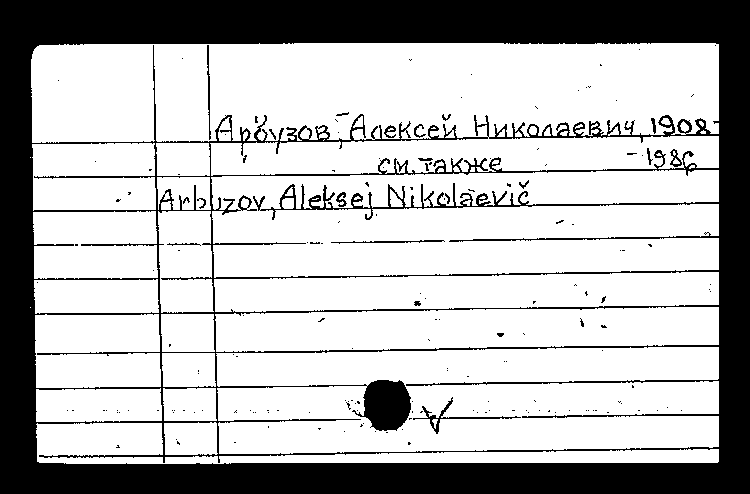 Арбузов, Алексей Николаевич, 1908-
см. также -1986
Arbuzov, Aleksej Nikolaevič